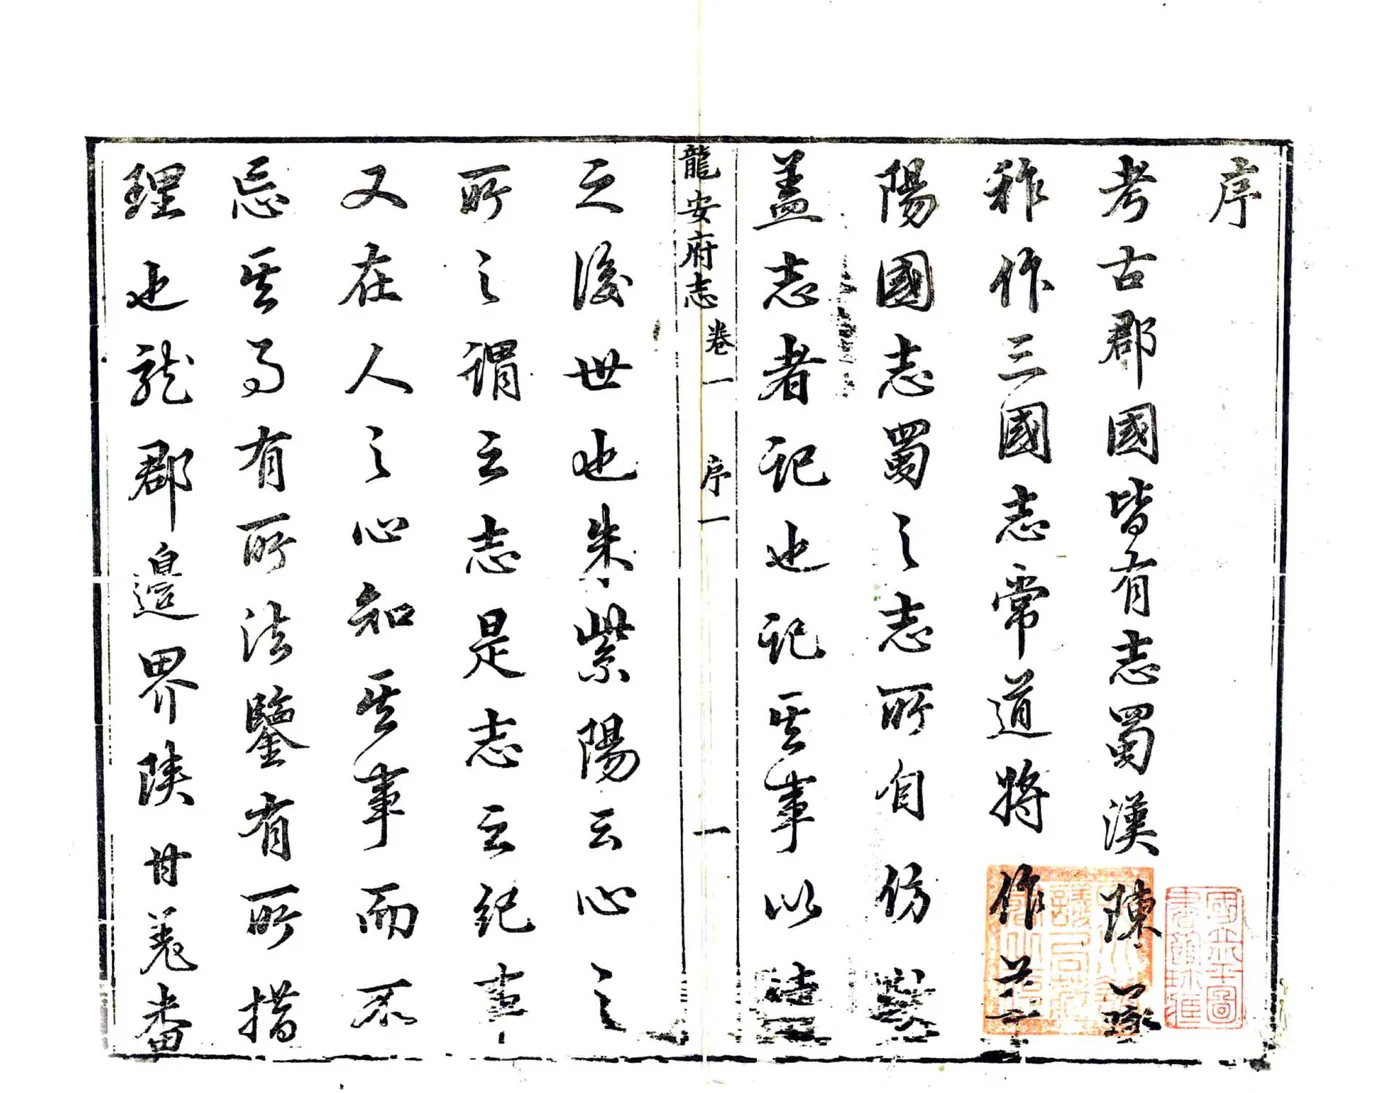 序
考古郡國皆有志蜀漢陳承
祚作三國志常道將作華
陽國志蜀之志所自仿歟
蓋志者記也記其事以
龍安府志 卷一 序一 一
之後世也朱紫陽云心之
所之謂之志是志之紀事
又在人之心知其事而不
忘其有所法鑒有所措
理也龍郡邊界陝甘羌番
國立北平圖書館珍藏